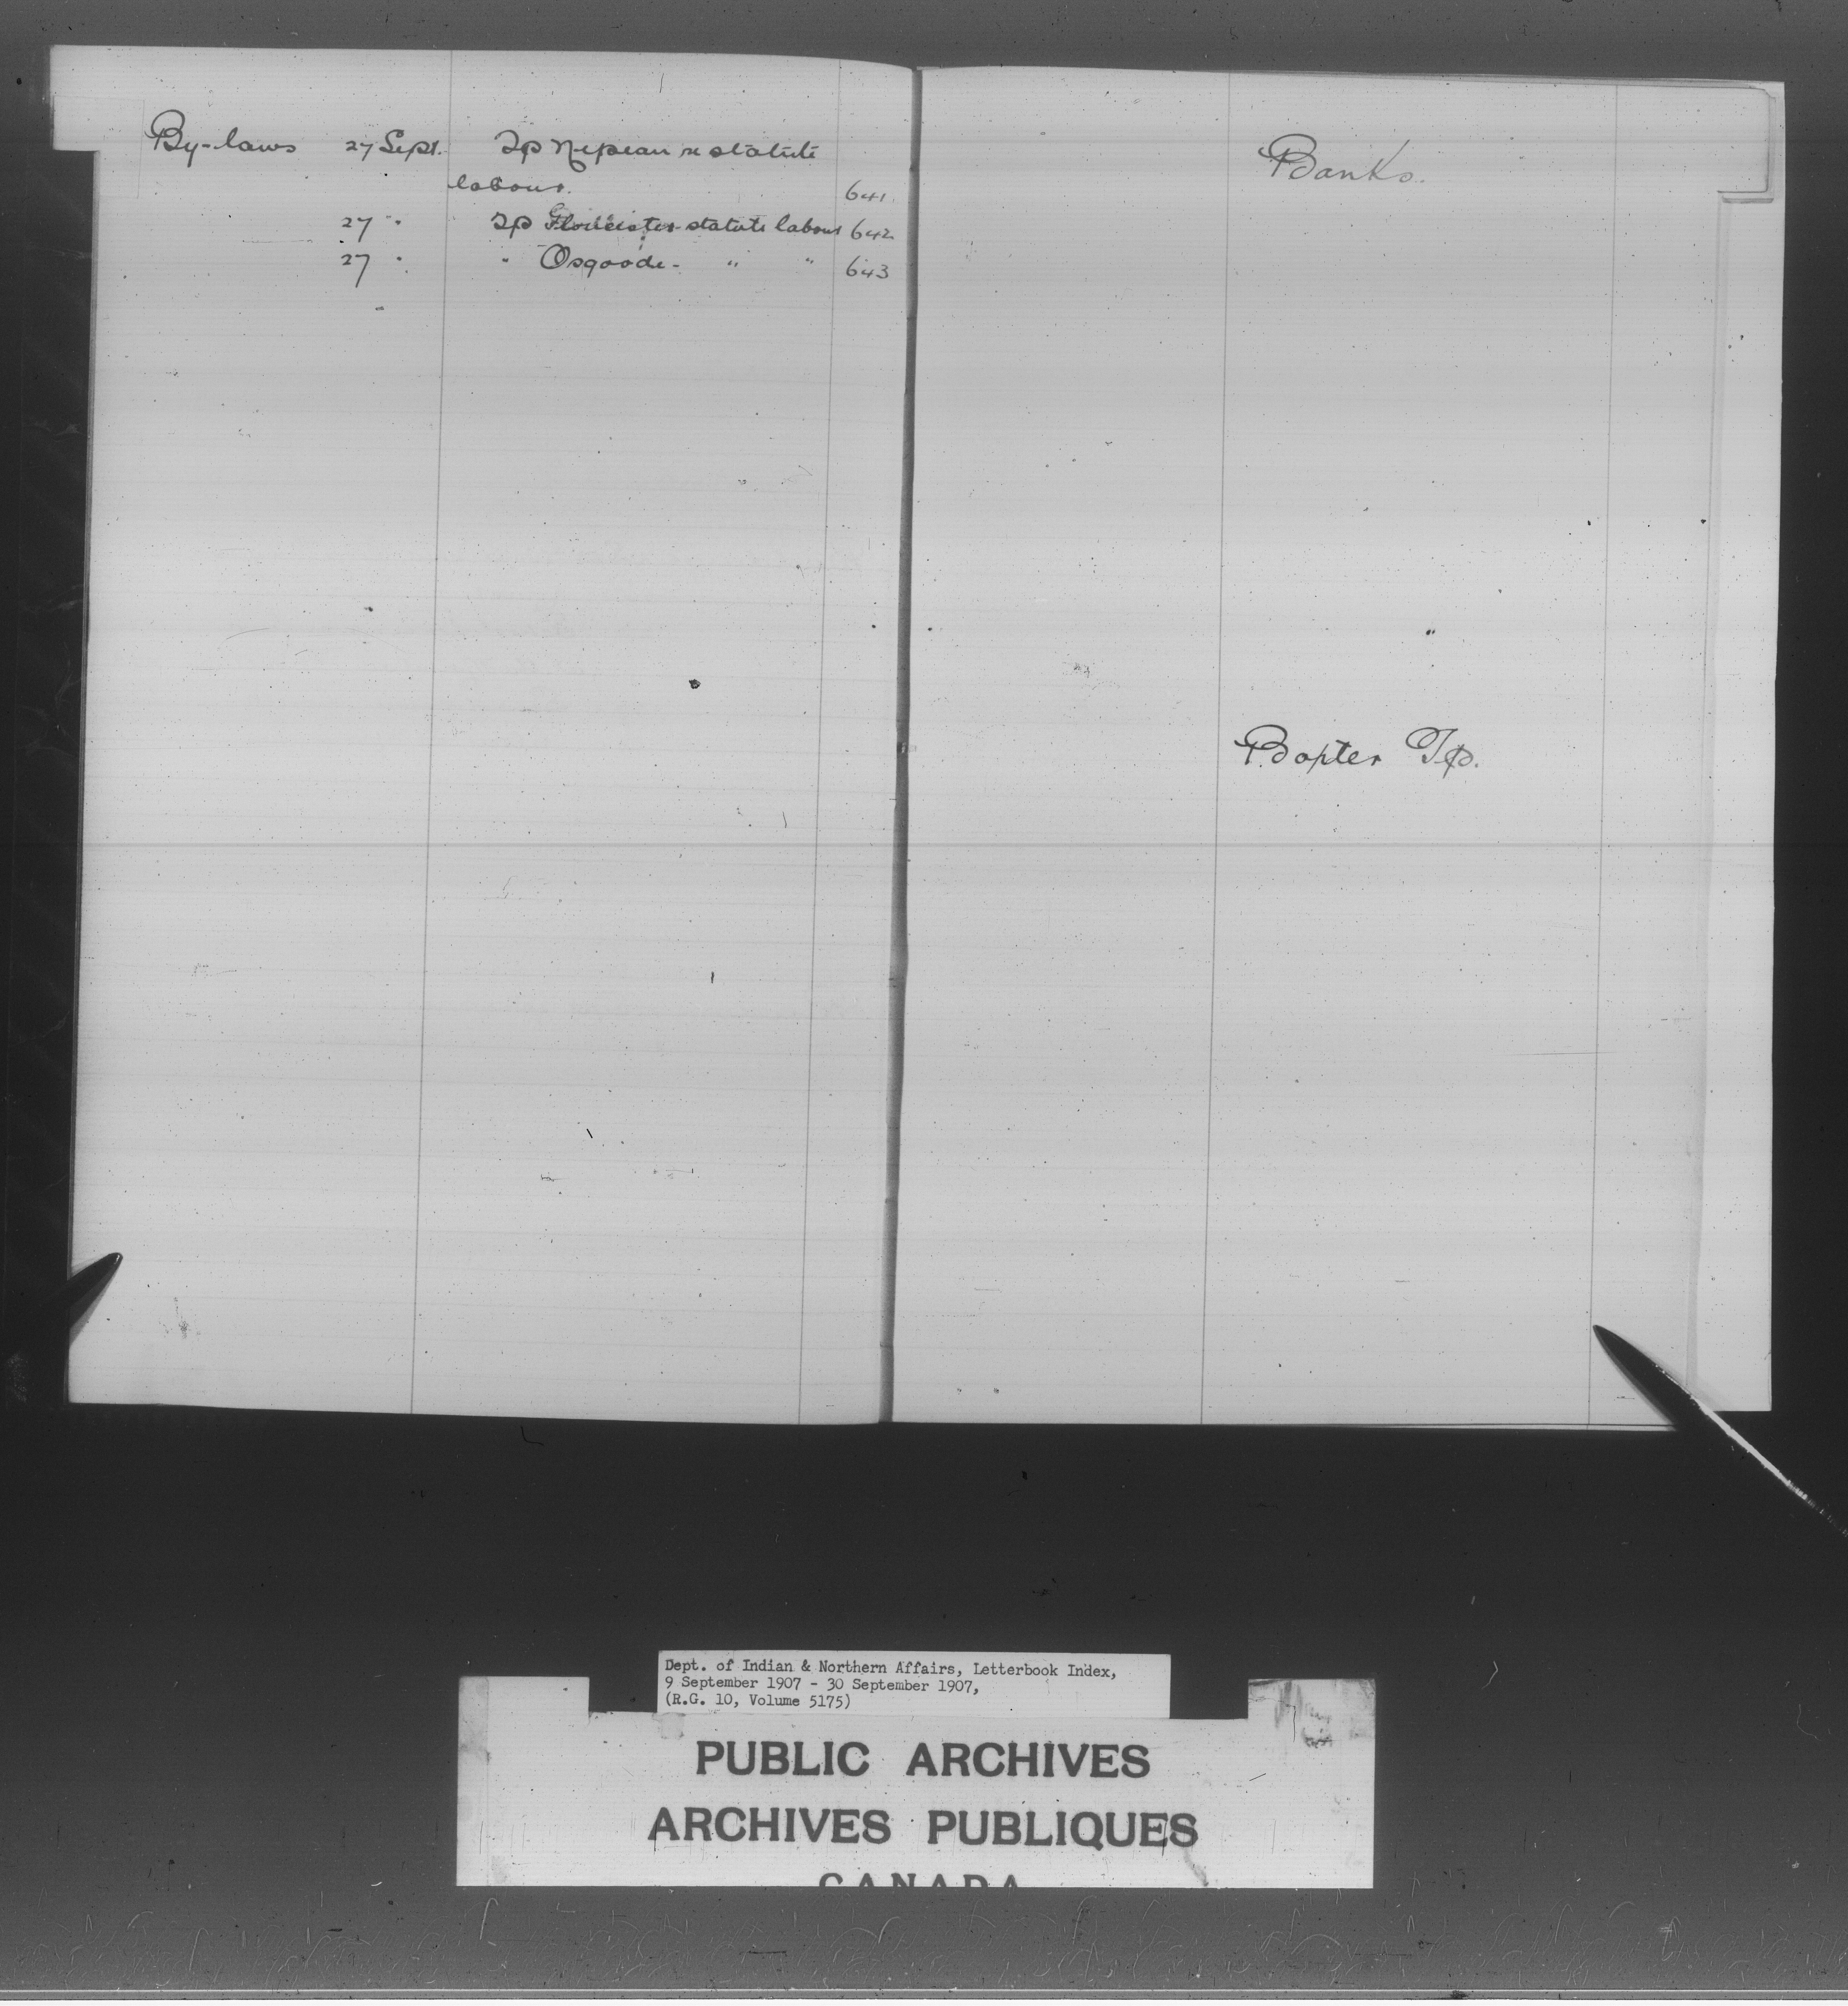 By-laws 27 Sept. Tp Nepean re statute
labour. 641
27 " Tp Gloucester statute labour 642
27 " " Osgoode - " " 643
Banks.
Baxter Tp.
Dept. of Indian & Northern Affairs, Letterbook Index,
9 September 1907 - 30 September 1907,
(R.G. 10, Volume 5175)
PUBLIC ARCHIVES
ARCHIVES PUBLIQUES
CANADA